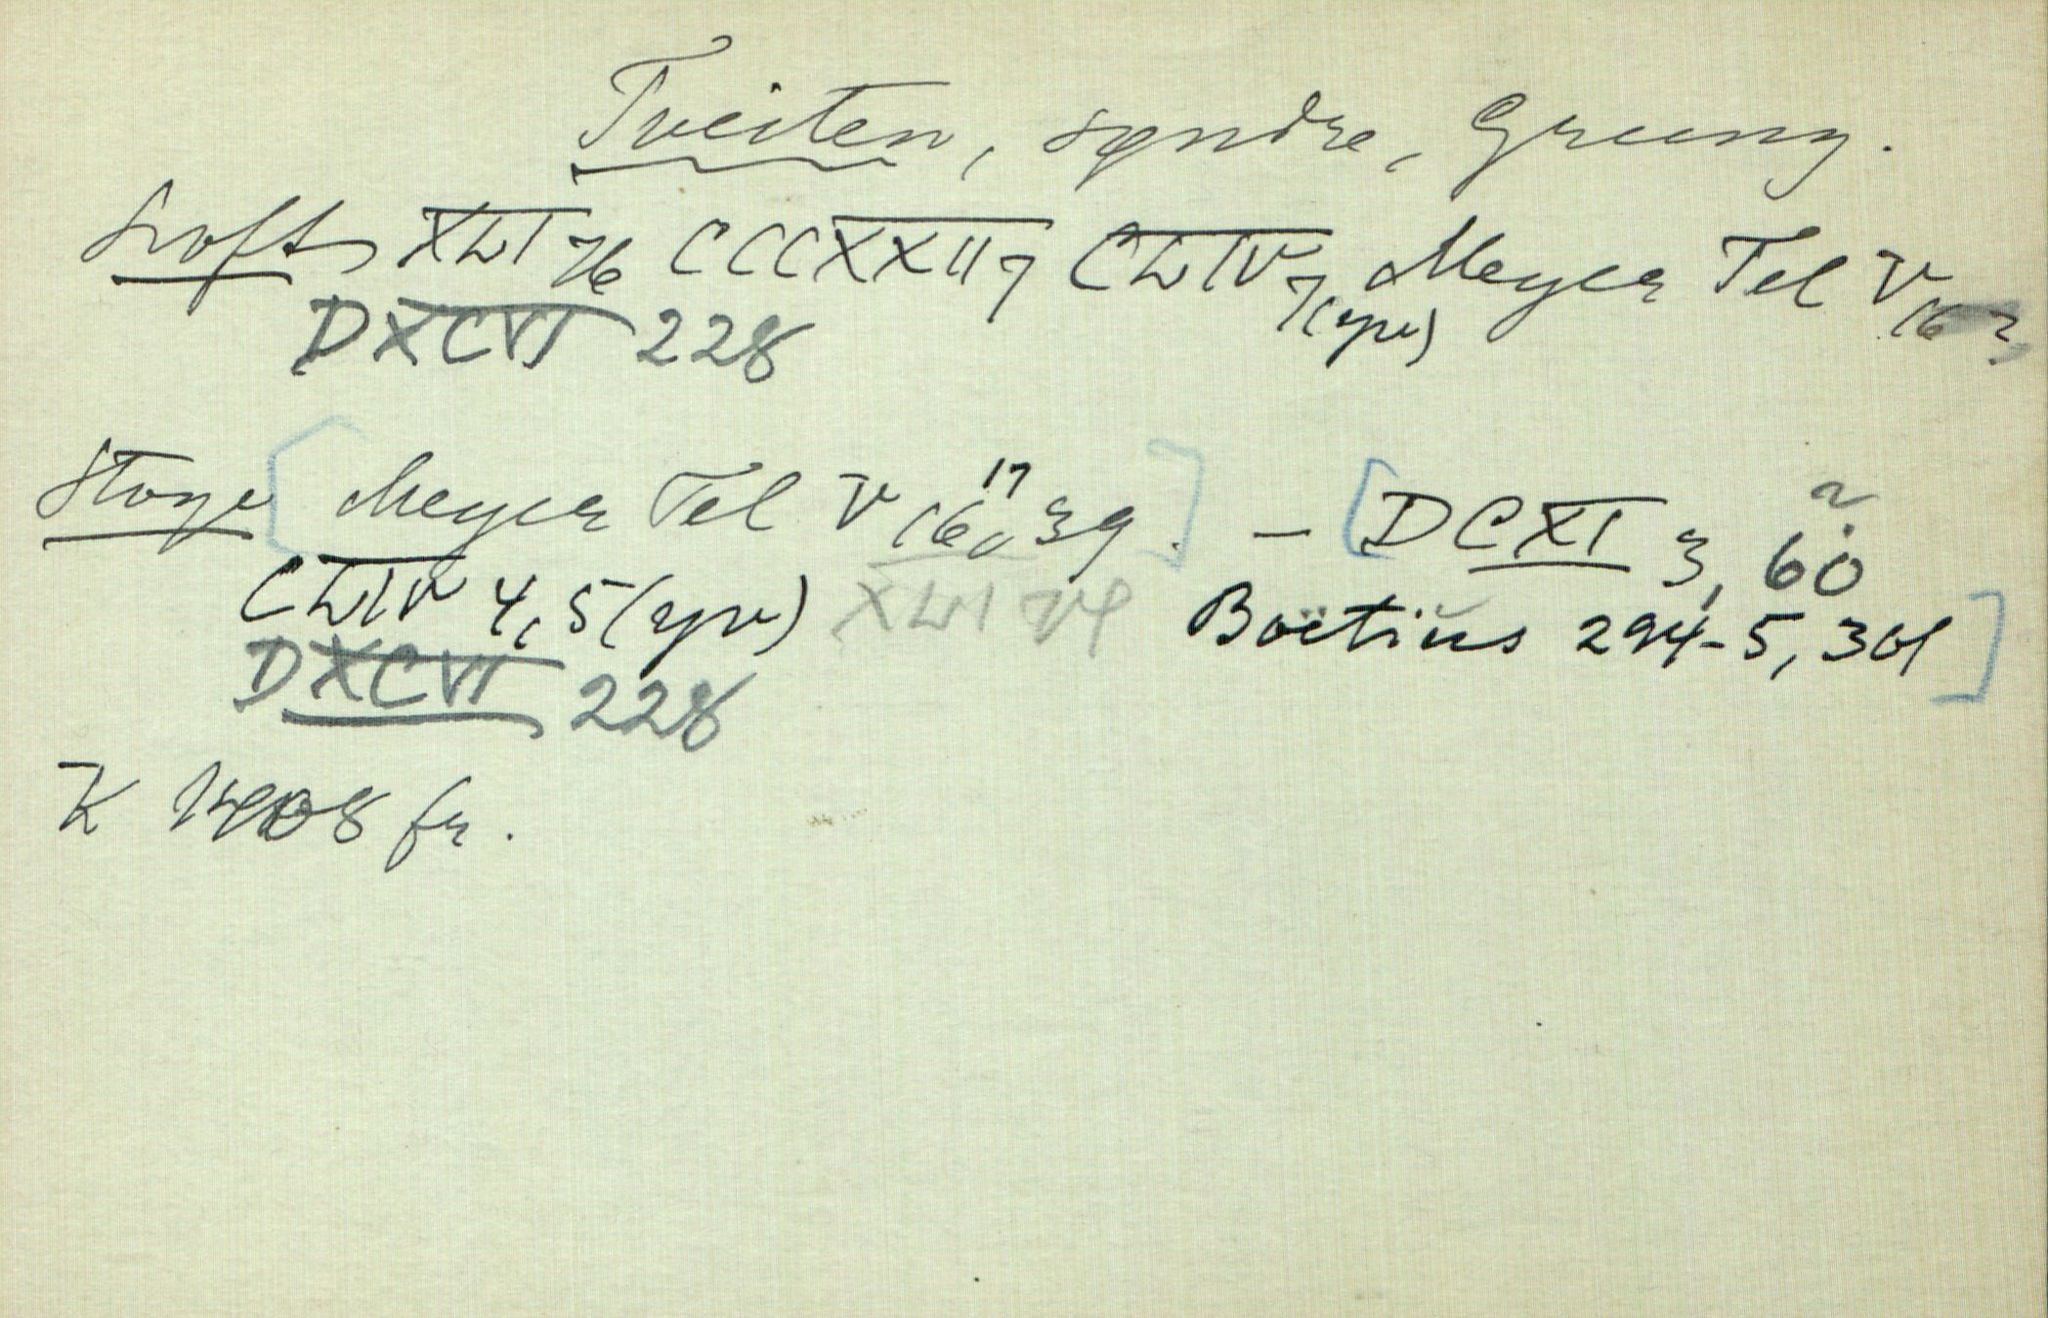 Tveiten, søndre, Gruung.
Loft XLVI 76 CCCXXII 7 CLVIV 7 Meyer Tel V 16
DXCVI 228
Stoge [Meyer Tel V 16, 17 39.] – [DCXI 3, 60
CLVIV 4, 5 XLVI 74 Boëtius 294-5, 301]
DXCVI 228
K fr.